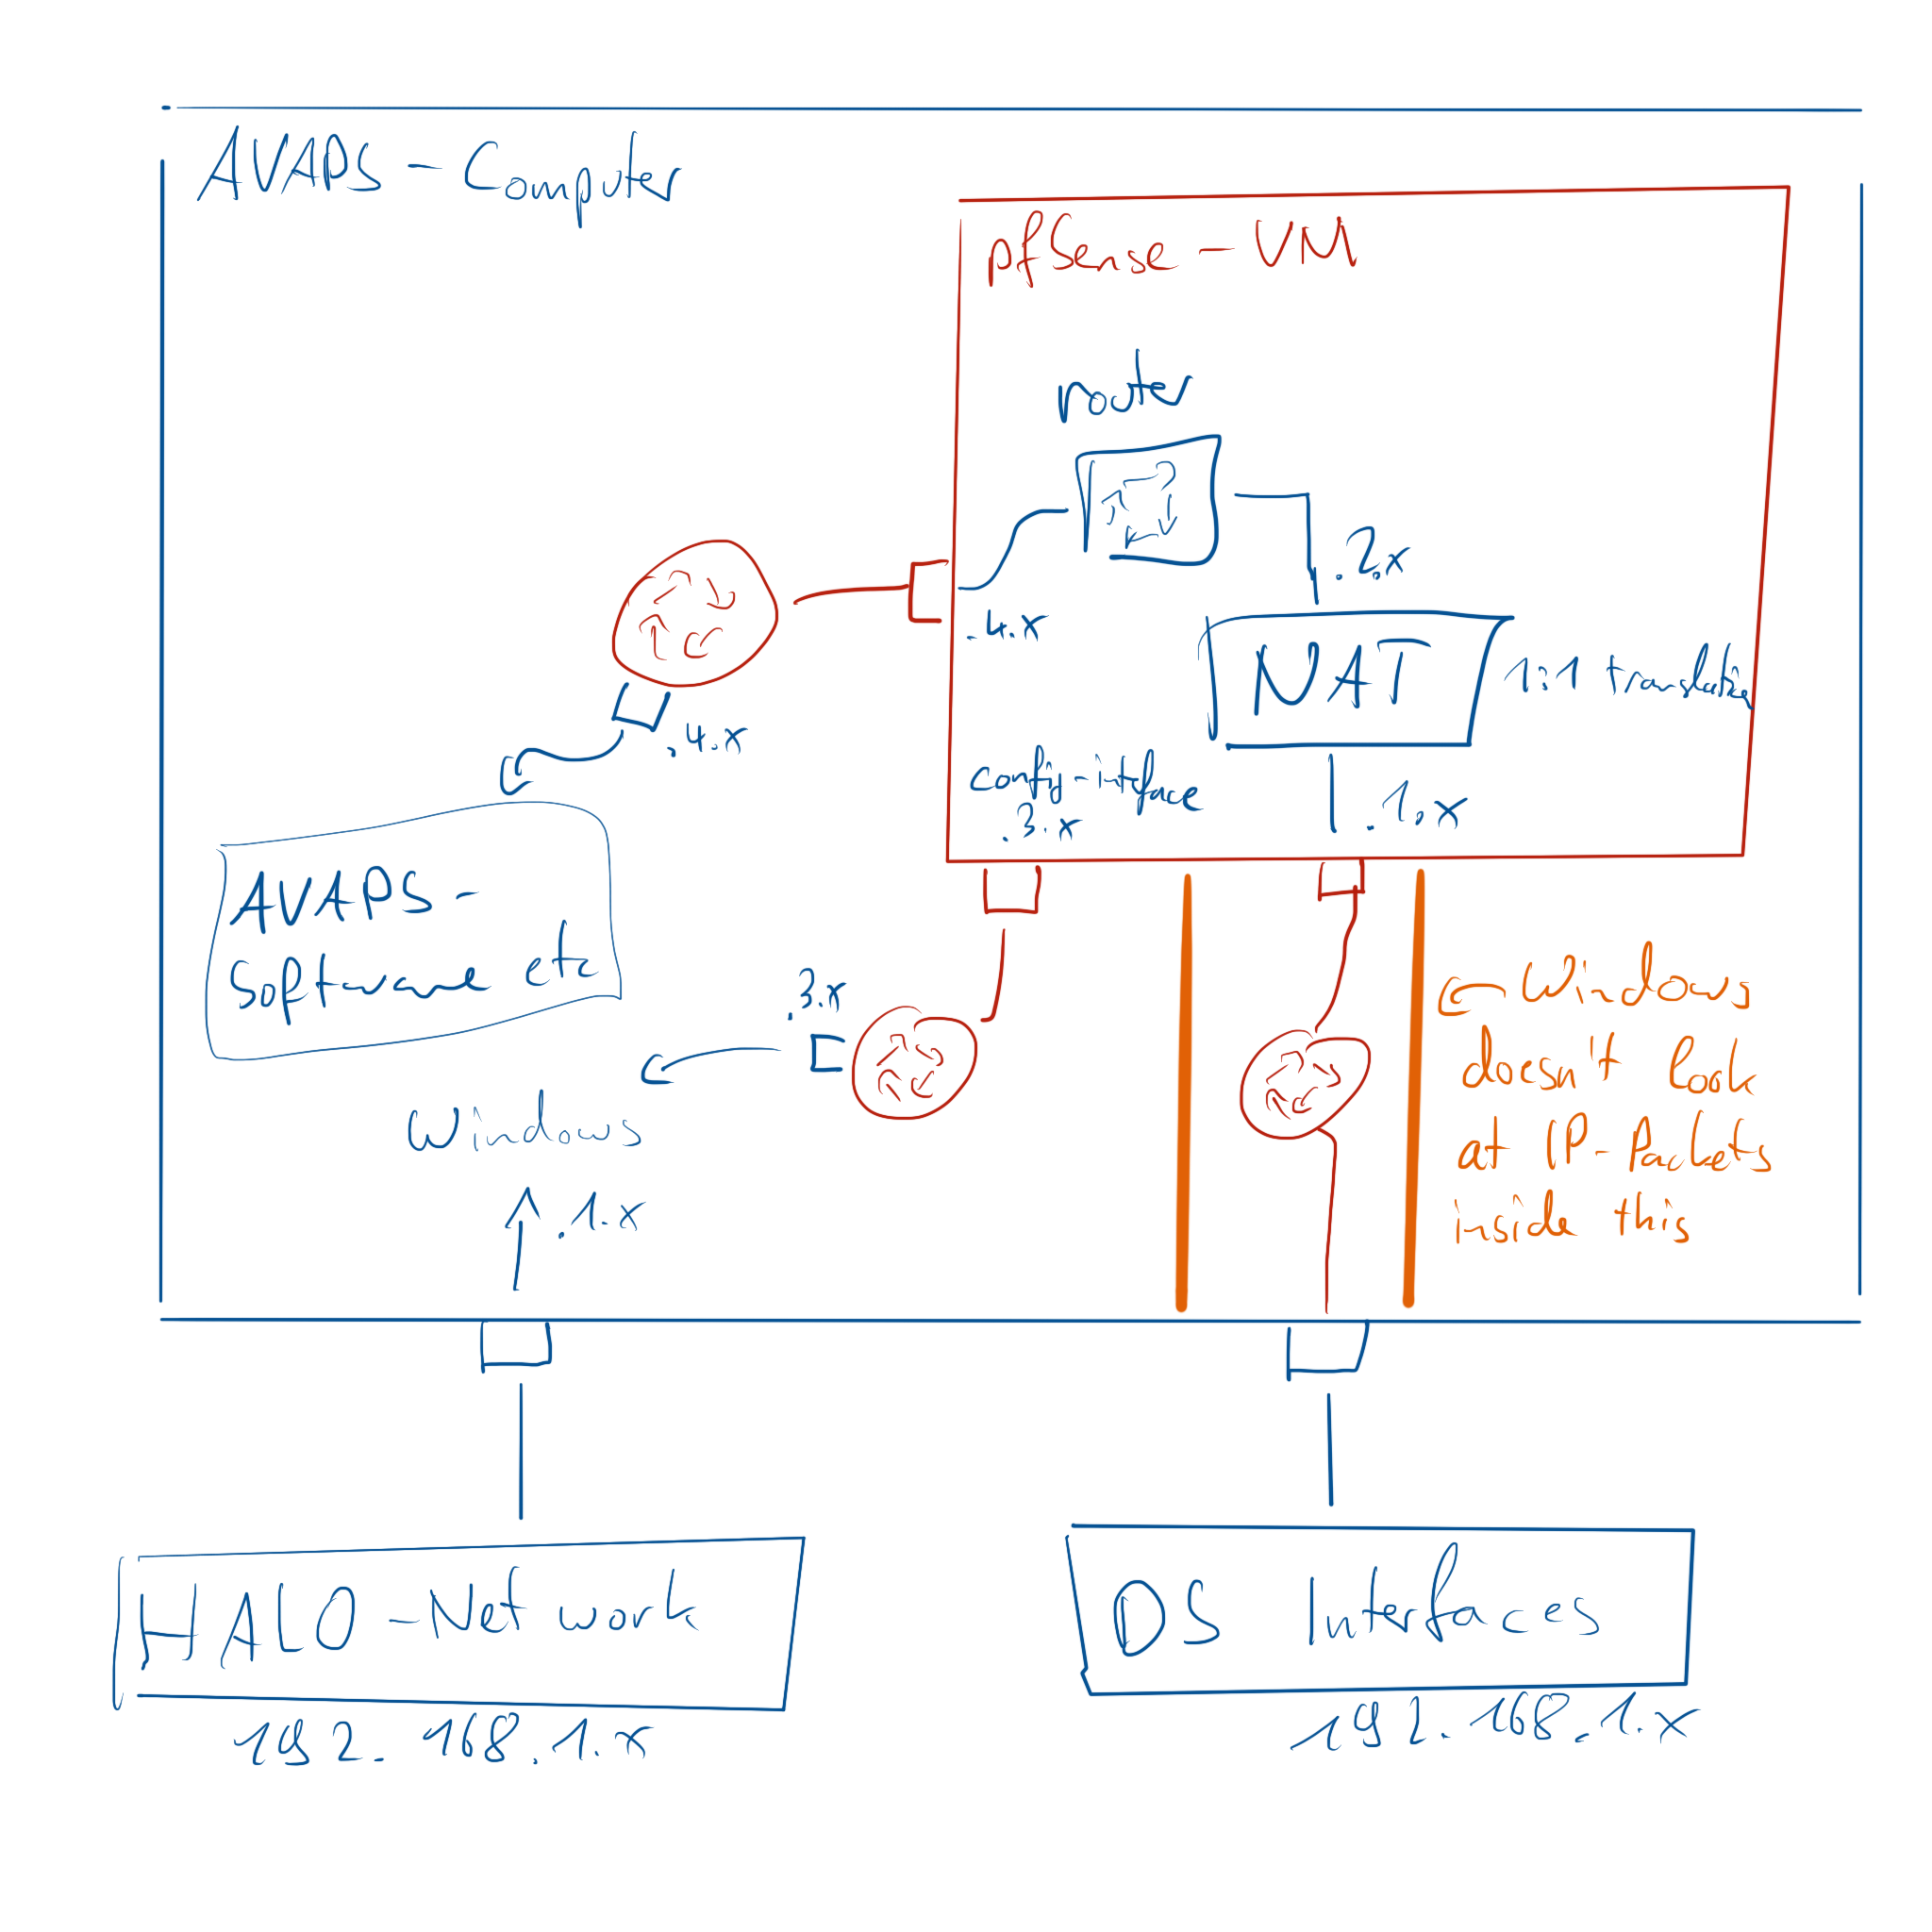 AVAPS - Computer
pfSense - VM
router
.2.x
.4.x
NAT
1:1 translation
.4.x
config-intface
.3.x
.1.x
AVAPS -
Software etc
.3.x
Windows
doesn't look
at IP-Packets
inside this
Windows
.1.x
HALO - Network
192.168.1.x
DS Interfaces
192.168.1.x